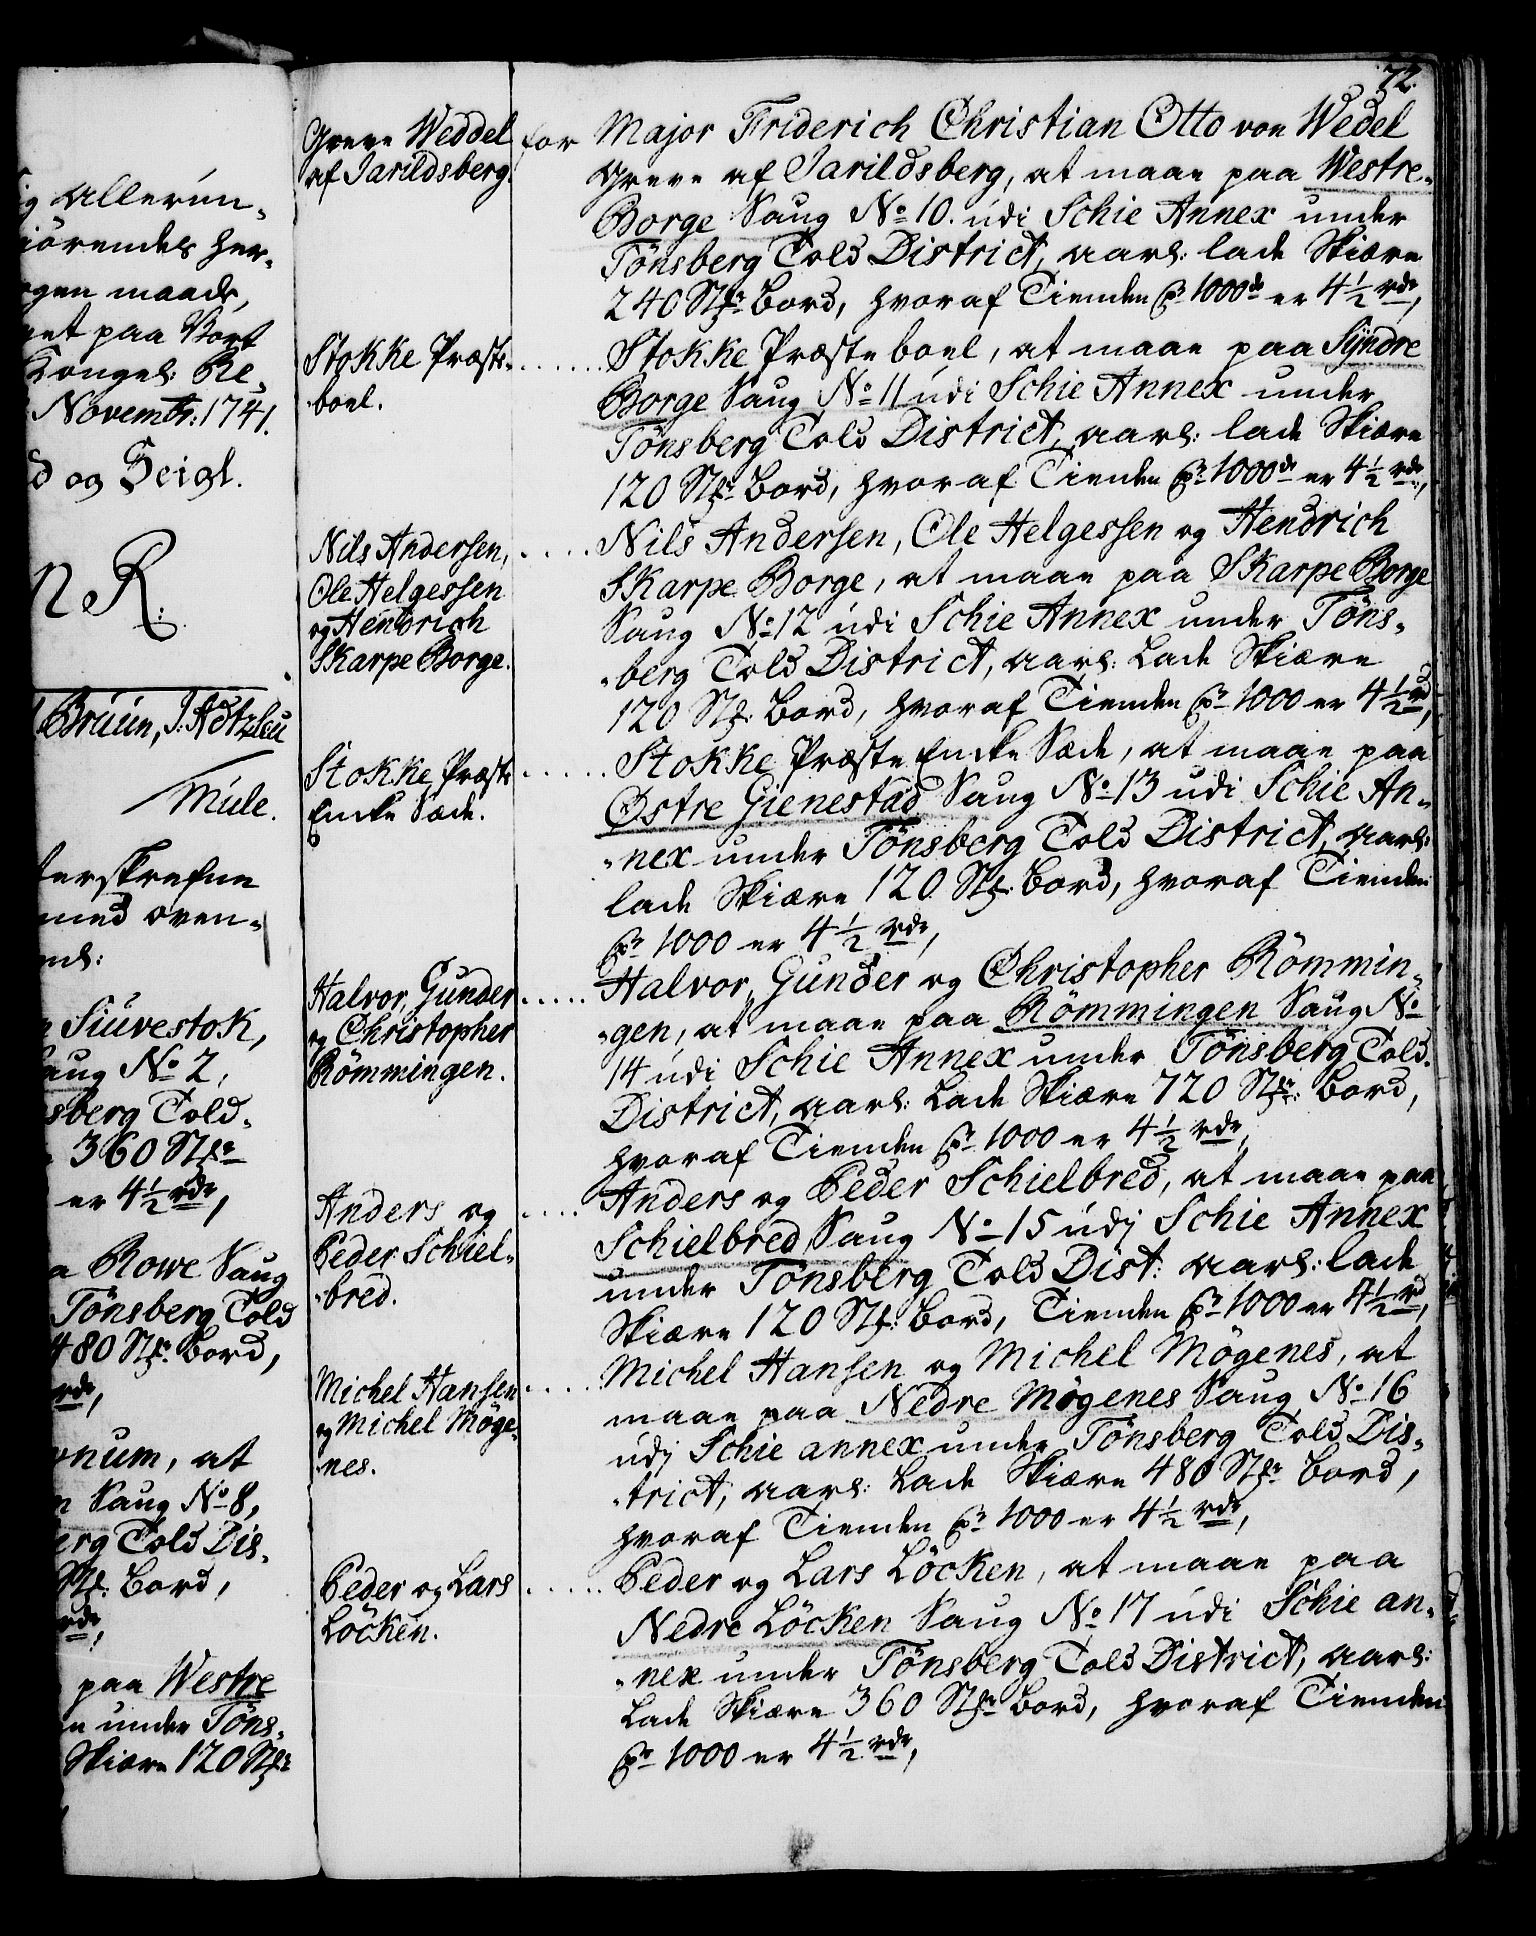 72.
g allerun-
iörendes her-
ogen maade,
net paa Vort
Kongel: Re-
Novembr: 1741.
d og Seigl.
R.
Bruun, J. Hötzleu
Mule.
terskrefne
med oven-
nd:
Siuvestok,
Saug No 2,
sberg Told-
360 Stkr
er 4½ rdr,
a Rowe Saug
Tönsberg Told
480 Stkr. Bord,
rdr,
onum, at
n Saug No 8,
erg Told Dis-
Stkr. Bord,
rdr,
paa Westre
n under Töns-
Skiære 120 Stkr
Greve Weddel
af Jarildsberg.
for Major Friderich Christian Otto von Wedel
Greve af Jarildsberg, at maae paa Westre-
Borge Saug No 10. udi Schie Annex under
Tönsberg Told District, aarl: lade Skiære
240 Stkr Bord, hvoraf Tienden pr 1000de er 4½ rdr,
Stokke Præste-
boel.
...... Stokke Præsteboel, at maae paa Syndre
Borge Saug No 11 udi Schie Annex under
Tönsberg Told District, aarl: lade Skiære
120 Stkr Bord, hvoraf Tienden pr 1000de er 4½ rdr,
Nils Andersen,
Ole Helgessen
og Hendrich
Skarpe Borge.
..... Nils Andersen, Ole Helgessen og Hendrich
Skarpe Borge, at maae paa Skarpe Borge
Saug No 12 udi Schie Annex under Töns-
-berg Told District, aarl: Lade Skiære
120 Stk: Bord, hvoraf Tienden pr 1000 er 4½ rd,
Stokke Præste
Encke Sæde.
..... Stokke Præste Encke Sæde, at maae paa
Østre Gienestad Saug No 13 udi Schie An-
-nex under Tönsberg Told District, aarl:
lade Skiære 120 Stk: Bord, hvoraf Tienden
pr 1000 er 4½ rdr,
Halvor, Gunder
og Christopher
Römmingen.
..... Halvor, Gunder og Christopher Römmin-
-gen, at maae paa Römmingen Saug No
14 udi Schie Annex under Tönsberg Told
District, aarl: Lade Skiære 720 Stkr: Bord,
hvoraf Tienden pr 1000 er 4½ rdr,
Anders og
Peder Schiel-
-bred.
.... Anders og Peder Schielbred, at maae paa
Schielbred Saug No 15 udj Schie Annex
under Tönsberg Told Dist: aarl: lade
Skiære 120 Stk: Bord, Tienden pr 1000 er 4½ rd,
Michel Hansen
og Michel Möge-
-nes.
..... Michel Hansen og Michel Mögenes, at
maae paa Nedre Mögenes Saug No 16
udj Schie annex under Tönsberg Told Dis-
-trict, aarl: Lade Skiære 480 Stkr Bord,
hvoraf Tienden pr 1000 er 4½ rdr,
Peder og Lars
Löcken.
..... Peder og Lars Löcken, at maae paa
Nedre Löcken Saug No 17 udi Schie an-
-nex under Tönsberg Told District, aarl:
Lade Skiære 360 Stkr Bord, hvoraf Tienden
pr 1000 er 4½ rdr,